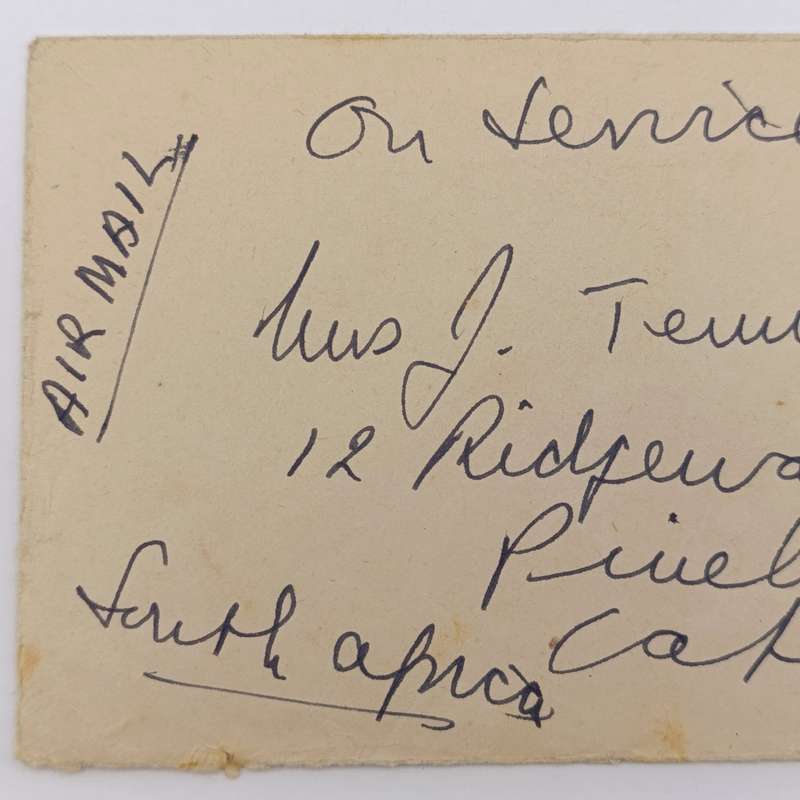 On Service
AIR MAIL
Mrs J. Tem
12 Ridgewa
Pinel
Cap
South Africa